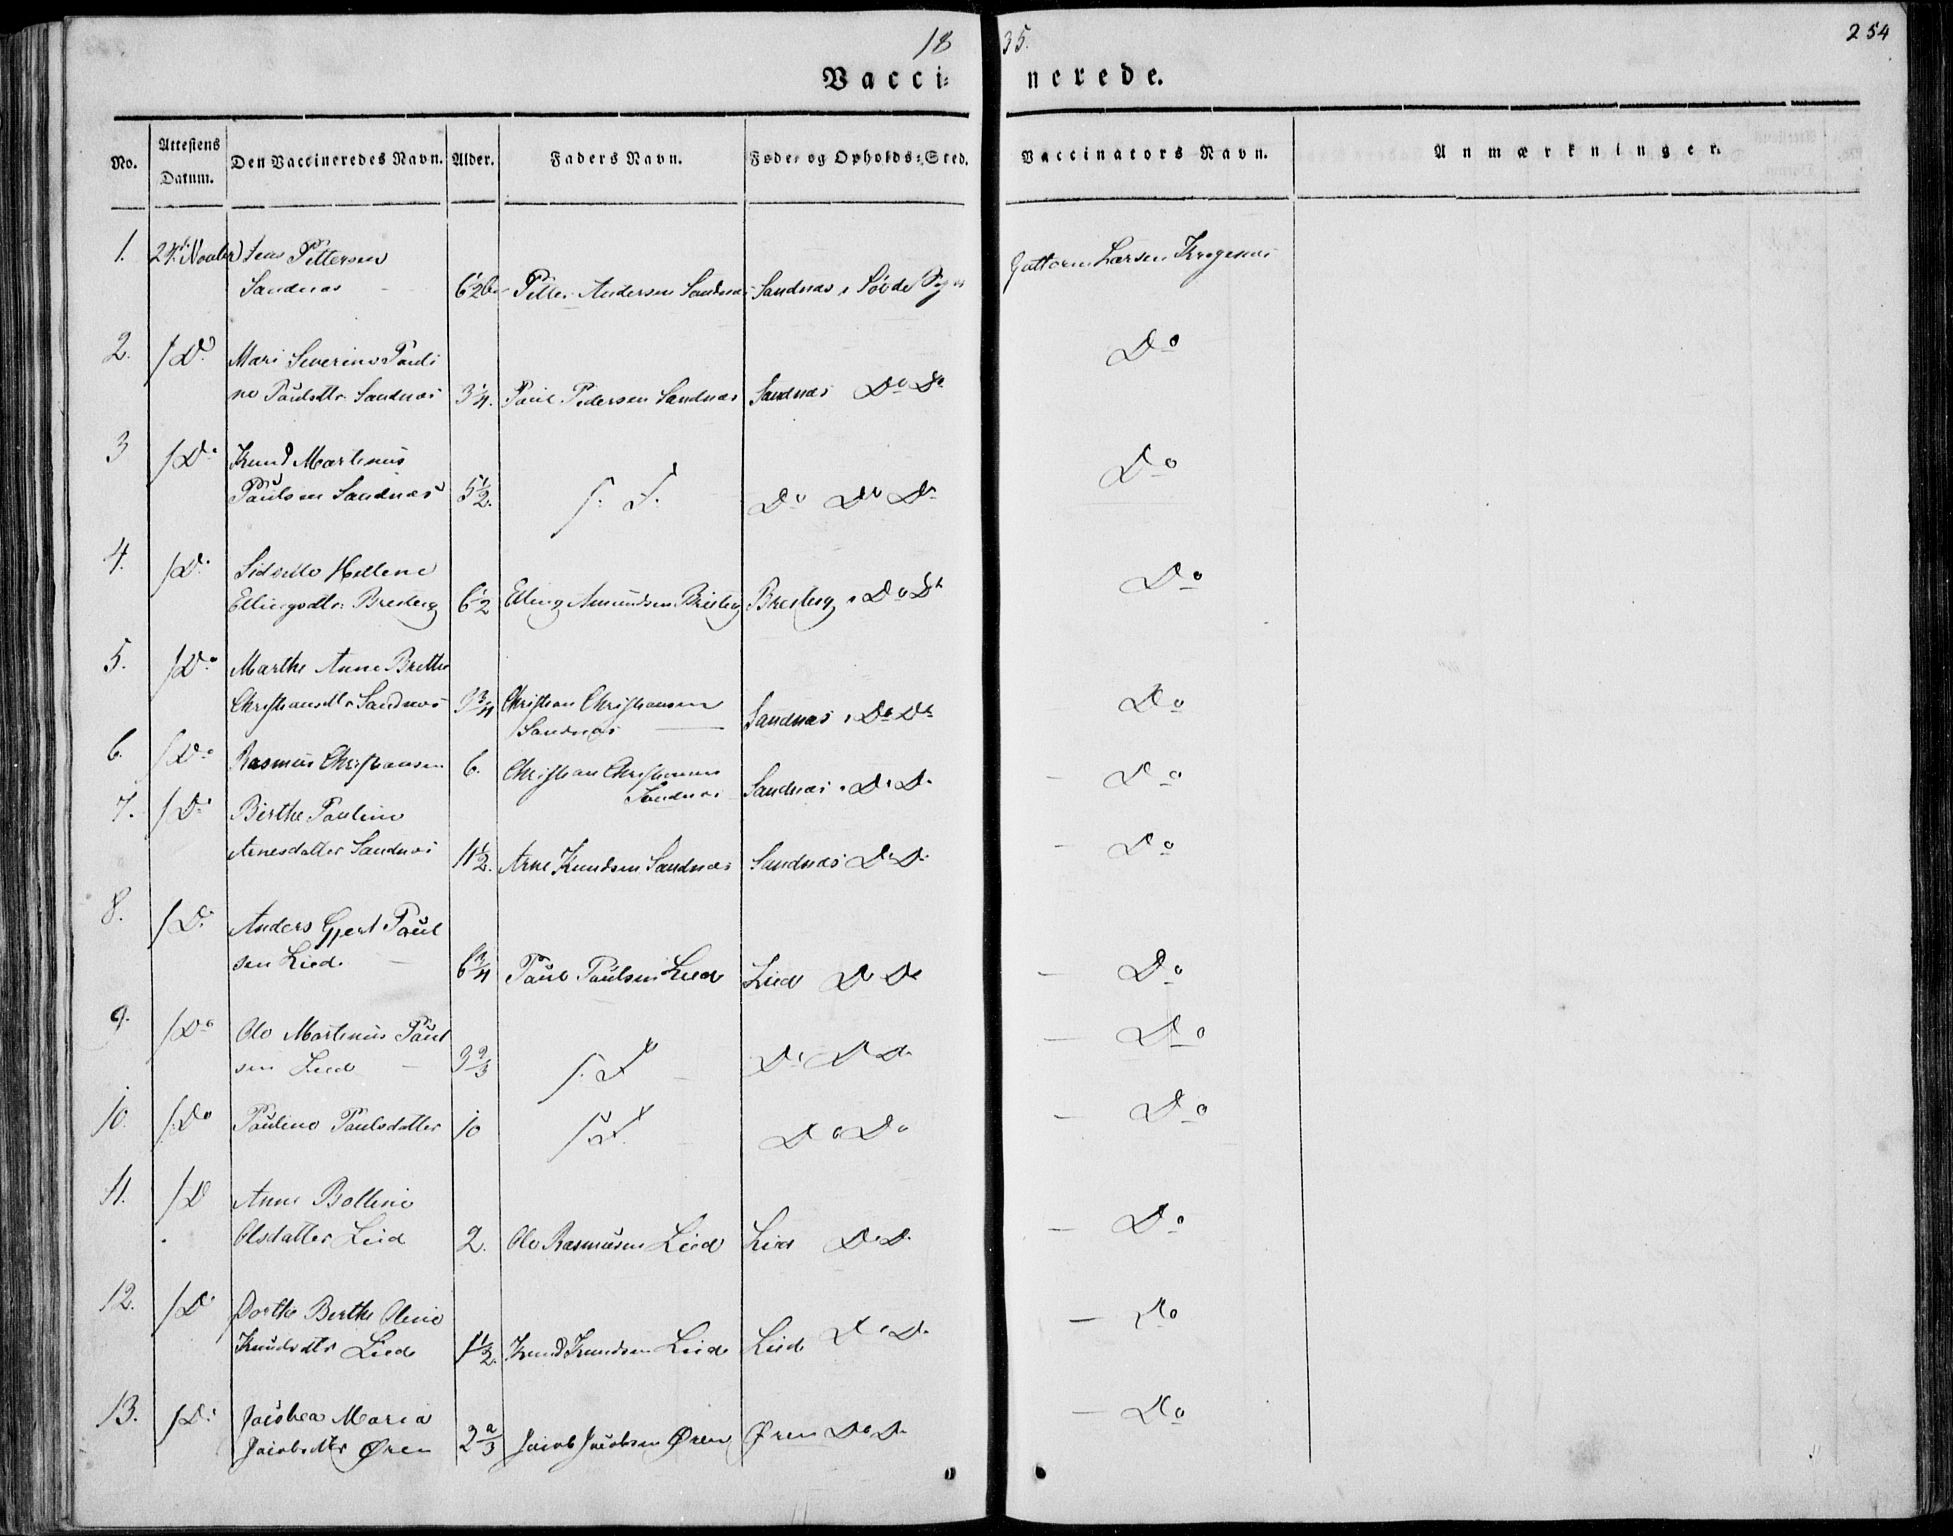 18 35.
254
Vacci- nerede.
No. Attestens Datum. Den Vaccineredes Navn. Alder. Faders Navn. Føde- og Opholds-Sted. Vaccinators Navn. Anmærkninger.
1. 24. Jens Pettersen Guttorm Larsen
Sandnæs 6½ Petter Andersen Sandnæs Sandnæs i Søvde
2. D° Mari Severine Pauli D°
ne Paulsdtr. Sandnæs 3¼. Paul Pedersen Sandnæs Sandnæs D° D°
3 D° Knud Martinus D°
Paulsen Sandnæs 5½. D° D° D°
4. D° Sidselle Hellene D°
Ellingsdtr. 6½ Elling Amundsen D° D°
5. D° Marthe Anne Brethe
Christiansdtr Sandnæs 9¾ Christian Christiansen Sandnæs i D° D° D°
Sandnæs
6. D° Rasmus Christiansen 6. Christian Christiansen D°
Sandnæs Sandnæs i D° D°
7. D° Birthe Pauline D°
Arnesdatter Sandnæs 11½. Arne Knudsen Sandnæs Sandnæs D° D°
8. D° Anders Gjert Paul
sen Lied 6¾ Paul Paulsen Lied Lied D° D° D°
9. D° Ole Martinus Paul D°
sen Lied D° D° D°
10. D° Pauline Paulsdatter 10 D° D° D°
11. D° Anne Bolline
Olsdatter Lied 2. Ole Rasmusen Lied Lied D° D° D°
12. D° Dorthe Berthe Oline D°
Knudsdtr Lied 1½. Knud Knudsen Lied Lied D° D°
13. D° Jacobea Maria D°
Jacobsdtr Øren 2⅔ Jacob Jacobsen Øren Øren D° D°